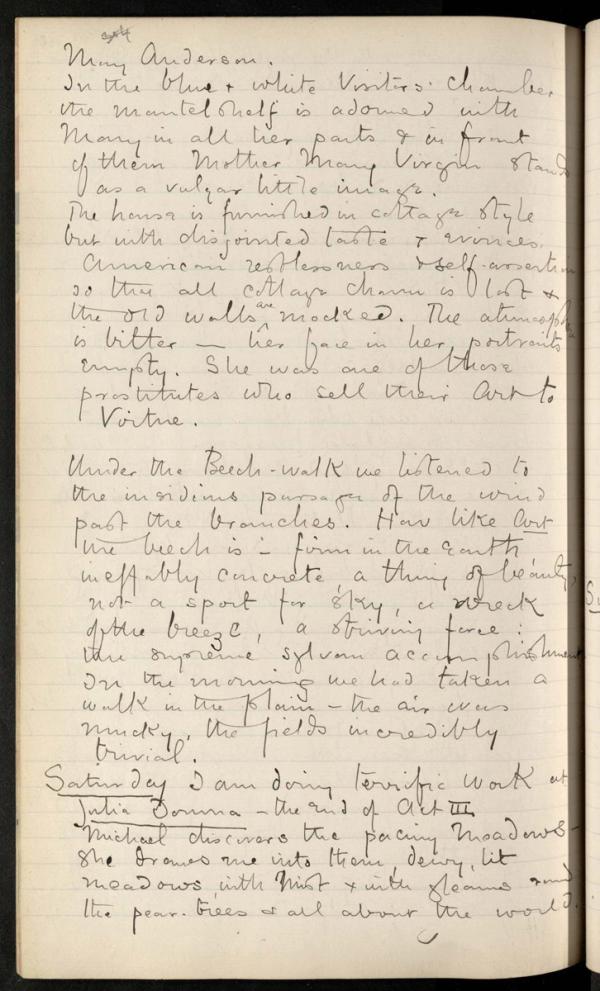 Mary Anderson.
In the blue & white Visitors' chamber
the mantelshelf is adorned with
Mary in all her parts & in front
of them Mother Mary Virgin stands
as a vulgar little image.
The house is furnished in cottage style
but with disjointed taste & evinces
American restlessness & self-assertion
so that all cottage charm is lost &
the old walls are mocked. The atmosphere
is bitter — her face in her portraits
empty. She was one of those
prostitutes who sell their Art to
Virtue.
Under the Beech-walk we listened to
the insidious passage of the wind
past the branches. How like Art
the beech is – firm in the earth,
ineffably concrete, a thing of beauty,
not a sport for sky, a wreck
of the breeze, a striving force:
the supreme sylvan accomplishment
In the morning we had taken a
walk in the plain – the air was
mucky, the fields incredibly
trivial.
Saturday I am doing terrific work at
Julia Domna – the end of Act III
Michael discovers the pacing meadows –
she draws me into them, dewy, lit
meadows, with mist & with gleams round
the pear-trees & all about the world.